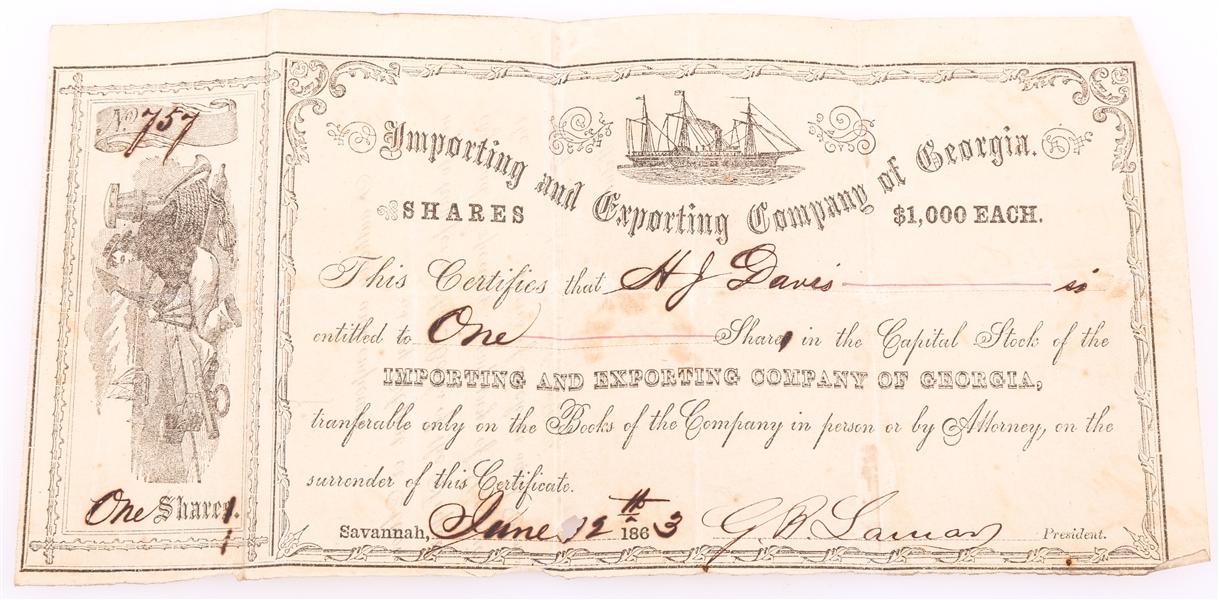 No. 757
Importing and Exporting Company of Georgia.
SHARES $1,000 EACH.
This Certifies that H J Davis is
entitled to One Share, in the Capital Stock of the
IMPORTING AND EXPORTING COMPANY OF GEORGIA,
tranferable only on the Books of the Company in person or by Attorney, on the
surrender of this Certificate.
One Shares.
Savannah, June 12th 1863 G. B. Lamar President.